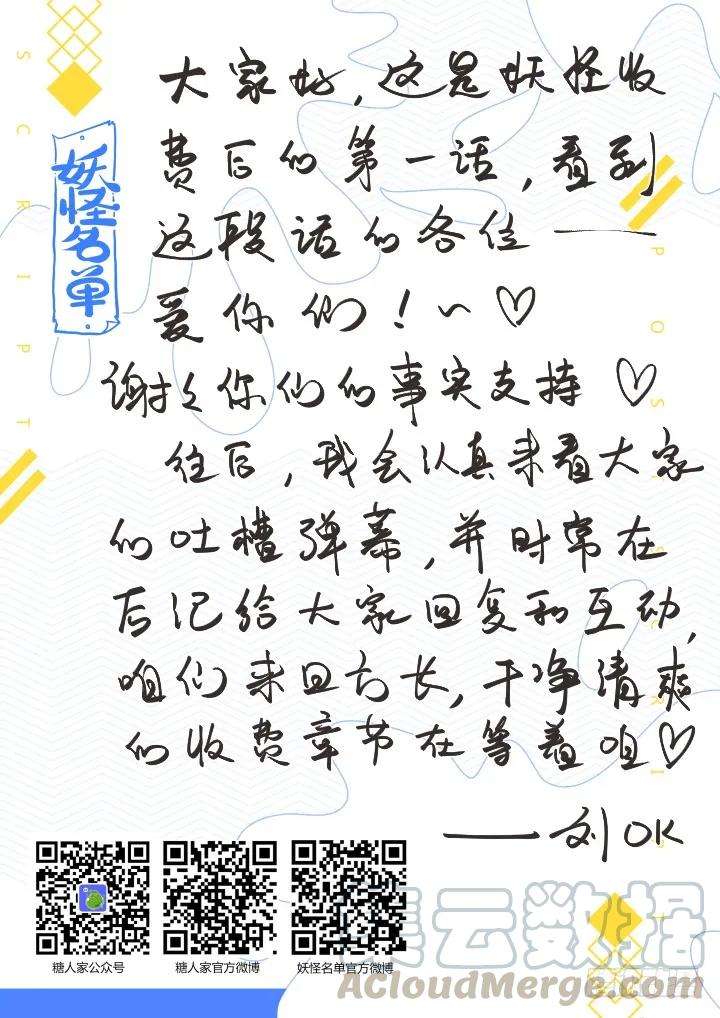 SCRIPT
妖怪名单
大家好,这是妖怪收
费后的第一话,看到
这段话的各位——
爱你们!~♡
谢谢你们的事实支持♡
往后,我会认真来看大家
的吐槽弹幕,并时常在
后记给大家回复和互动,
咱们来日方长,干净清爽
的收费章节在等着咱♡
——刘OK
糖人家公众号
糖人家官方微博
妖怪名单官方微博
集云数据
AcloudMerge.com